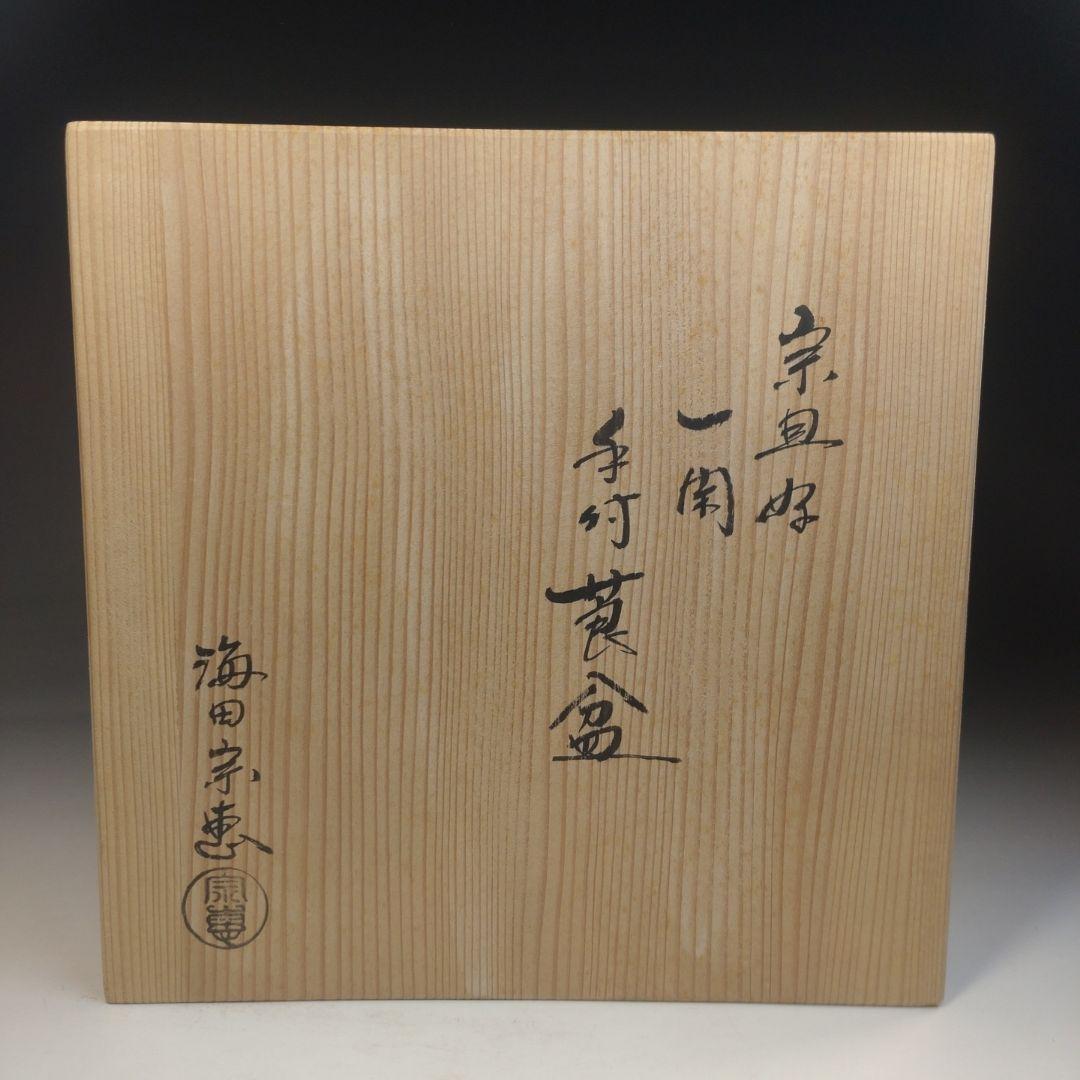 宗旦好
一閑
手付莨盆
海田宗恵
宗恵